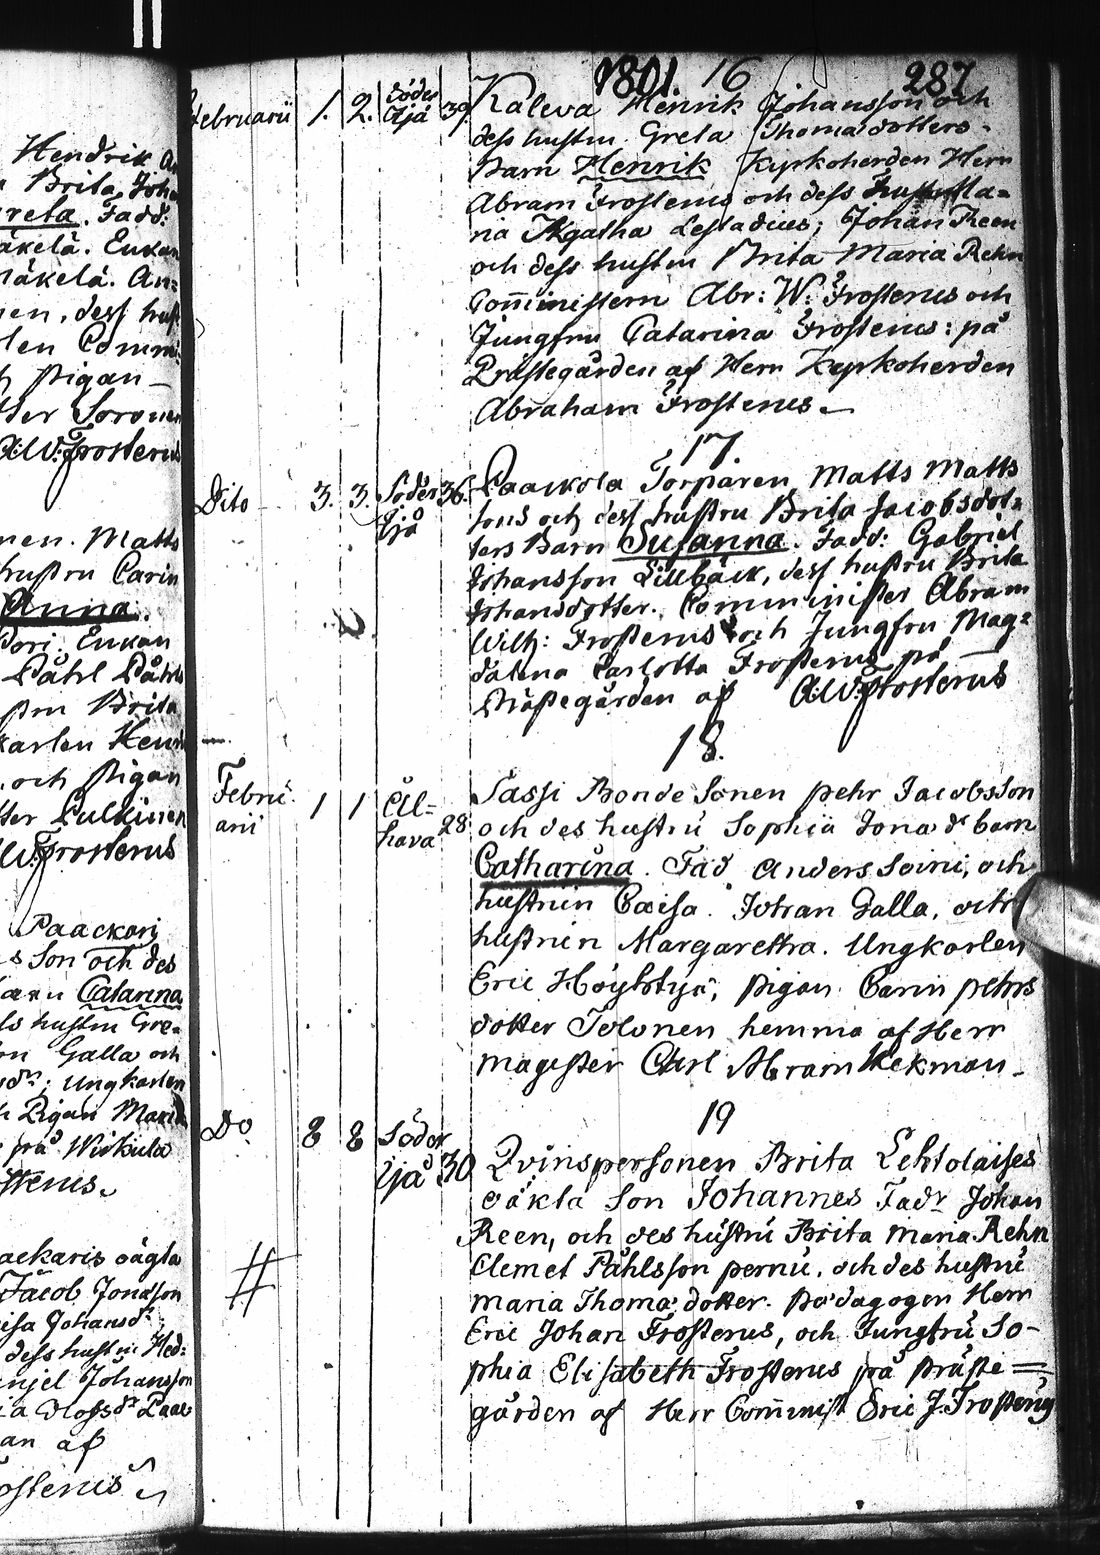 Hendrik
Brita Joha
Greta. Fadd:
mäkelä. Enkan
mäkelä. An=
nen, dess hust
len Commi
Pigan
ter Soronen
A:W: Frosterus
nen. Matts
hustru Carin
Anna.
Enkan
Påhl Påhls
stru Brita
karlen Henri
och Pigan
ter Pulkinen
W: Frosterus
Paackari
s Son och des
barn Catarina
hustru Gre=
Galla och
Ungkarlen
Pigan Maria
på Wirkula
sterus.
Paackaris oägta
Jacob Jonasson
Caisa Johansdr;
dess hustru Hed:
Johansson
Olofsdr Paac
an af
Frosterus
1801. 287
16
Februarii 1. 2. Söder Ytjä 39. Kaleva Henrik Johansson och
dess hustru Greta Thomædotters
Barn Henrik Kyrkoherden Herr
Abram Frosterus och dess Hustru Ha=
na Agatha Lestadius; Johan Reen
och dess hustru Brita Maria Rehn
Com̄inistern Abr: W: Frosterus och
Jungfru Catarina Frosterus: på
Prästegården af Herr Kyrkoherden
Abraham Frosterus.
17.
Dito 3. 3. Söder 36. Paackola Torparen Matts Matts
sons och dess hustru Brita Jacobsdot=
ters Barn Susanna. Fadd: Gabriel
Johansson Lillbäck, dess hustru Brita
Johansdotter. Comminister Abram
Wilh: Frosterus och Jungfru Mag=
dalena Carlotta Frosterus på
Prästegården af A:W: Frosterus
18.
Febru
arii 1 1 Al=
hava 28 Sassi Bonde Sonen pehr Jacobsson
och des hustru Sophia Jonæ dr barn
Catharina. Fad Anders Soini, och
hustrun Caisa. Johan Galla, och
hustrun Margaretha. Ungkarlen
Eric Höyhtyä, Pigan Carin pehrs
dotter Tolonen hemma af Herr
magister Carl Abram Kekman
19
Do. 8 8 Söder
30 Qvinspersonen Brita Lehtolaises
oäkta Son Johannes Fadr Johan
Reen, och des hustru Brita Maria Rehn
Clemet Påhlsson pernu, och des hustru
Maria Thomædotter. Pædagogen Herr
Eric Johan Frosterus, och Jungfru So-
phia Elisabeth Frosterus på Präste=
gården af Herr Com̄inist Eric J. Frosterus
#